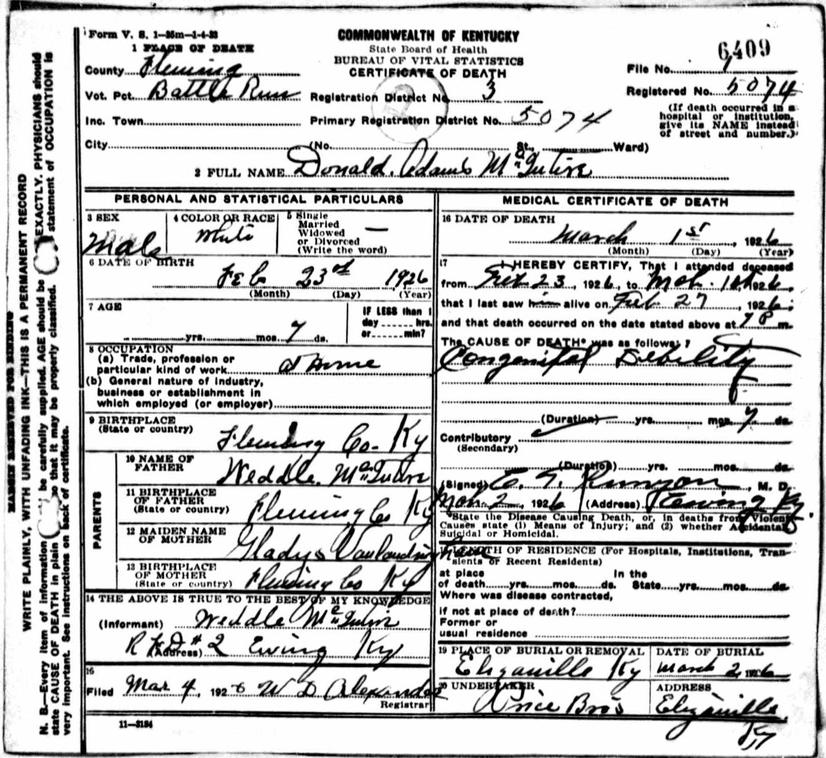 Form V. S. 1-35m-1-4-23
COMMONWEALTH OF KENTUCKY
State Board of Health
BUREAU OF VITAL STATISTICS
CERTIFICATE OF DEATH
6409
1 PLACE OF DEATH
County Fleming
File No. 1
Vot. Pct. Battle Run
Registration District No. 3
Registered No. 5074
Inc. Town
Primary Registration District No. 5074
(If death occurred in a hospital or institution, give its NAME instead of street and number.)
City (No. St., Ward)
2 FULL NAME Donald. Adams McIntire
PERSONAL AND STATISTICAL PARTICULARS
3 SEX
Male
4 COLOR OR RACE
White
5 Single
Married
Widowed
or Divorced
(Write the word)
6 DATE OF BIRTH
Feb 23rd 1926
(Month) (Day) (Year)
7 AGE
yrs. mos. 7 ds.
IF LESS than 1
day hrs.
or min?
8 OCCUPATION
(a) Trade, profession or
particular kind of work at Home
(b) General nature of industry,
business or establishment in
which employed (or employer)
9 BIRTHPLACE
(State or country) Fleming Co. Ky
PARENTS
10 NAME OF
FATHER Weddle. McIntire
11 BIRTHPLACE
OF FATHER
(State or country) Fleming Co Ky
12 MAIDEN NAME
OF MOTHER Gladys
13 BIRTHPLACE
OF MOTHER
(State or country) Fleming Co Ky
14 THE ABOVE IS TRUE TO THE BEST OF MY KNOWLEDGE
(Informant) Weddle McIntire
(Address) R F D # 2 Ewing Ky
15
Filed Mar 4, 1926 W D Alexander
Registrar
11-3184
MEDICAL CERTIFICATE OF DEATH
16 DATE OF DEATH
March 1st, 1926
(Month) (Day) (Year)
17 I HEREBY CERTIFY, That I attended deceased
from Feb 23, 1926, to Mch. 1st 1926
that I last saw him alive on Feb 27, 1926
and that death occurred on the date stated above at 7 P m.
The CAUSE OF DEATH* was as follows:
Congenital Debility
(Duration) yrs. mos. 7 ds.
Contributory
(Secondary)
(Duration) yrs. mos. ds.
(Signed) M. D.
Mch 2, 1926 (Address) Ewing Ky
*State the Disease Causing Death, or, in deaths from Violent
Causes state (1) Means of Injury; and (2) whether Accidental,
Suicidal or Homicidal.
LENGTH OF RESIDENCE (For Hospitals, Institutions, Tran-
sients or Recent Residents)
at place In the
of death yrs. mos. ds. State yrs. mos. ds.
Where was disease contracted,
if not at place of death?
Former or
usual residence
19 PLACE OF BURIAL OR REMOVAL
Elizaville Ky
DATE OF BURIAL
March 2, 1926
20 UNDERTAKER
Price Bros
ADDRESS
Elizaville
Ky
MARGIN RESERVED FOR BINDING
WRITE PLAINLY, WITH UNFADING INK—THIS IS A PERMANENT RECORD
N. B.—Every item of information be carefully supplied. AGE should be EXACTLY. PHYSICIANS should
state CAUSE OF DEATH in plain so that it may be properly classified. statement of OCCUPATION is
very important. See instructions on back of certificate.